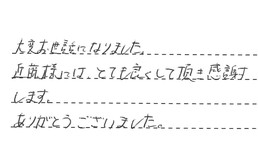 大変お世話になりました。
近藤様には、とても良くして頂き感謝
します。
ありがとうございました。